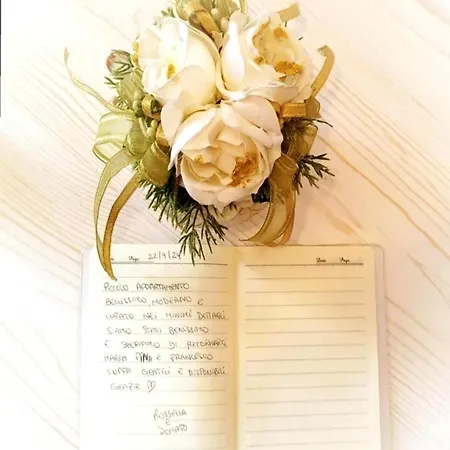 Date. Page. 22/9/24
PICCOLO APPARTAMENTO
BELLISSIMO, MODERNO E
CURATO NEI MINIMI DETTAGLI.
SIAMO STATI BENISSIMO
E SPERIAMO DI RITORNARCI
MARIA PINA E FRANCESCO
SUPER GENTILI E DISPONIBILI
GRAZIE
ROSSELLA
E
DONATO
Date. Page.